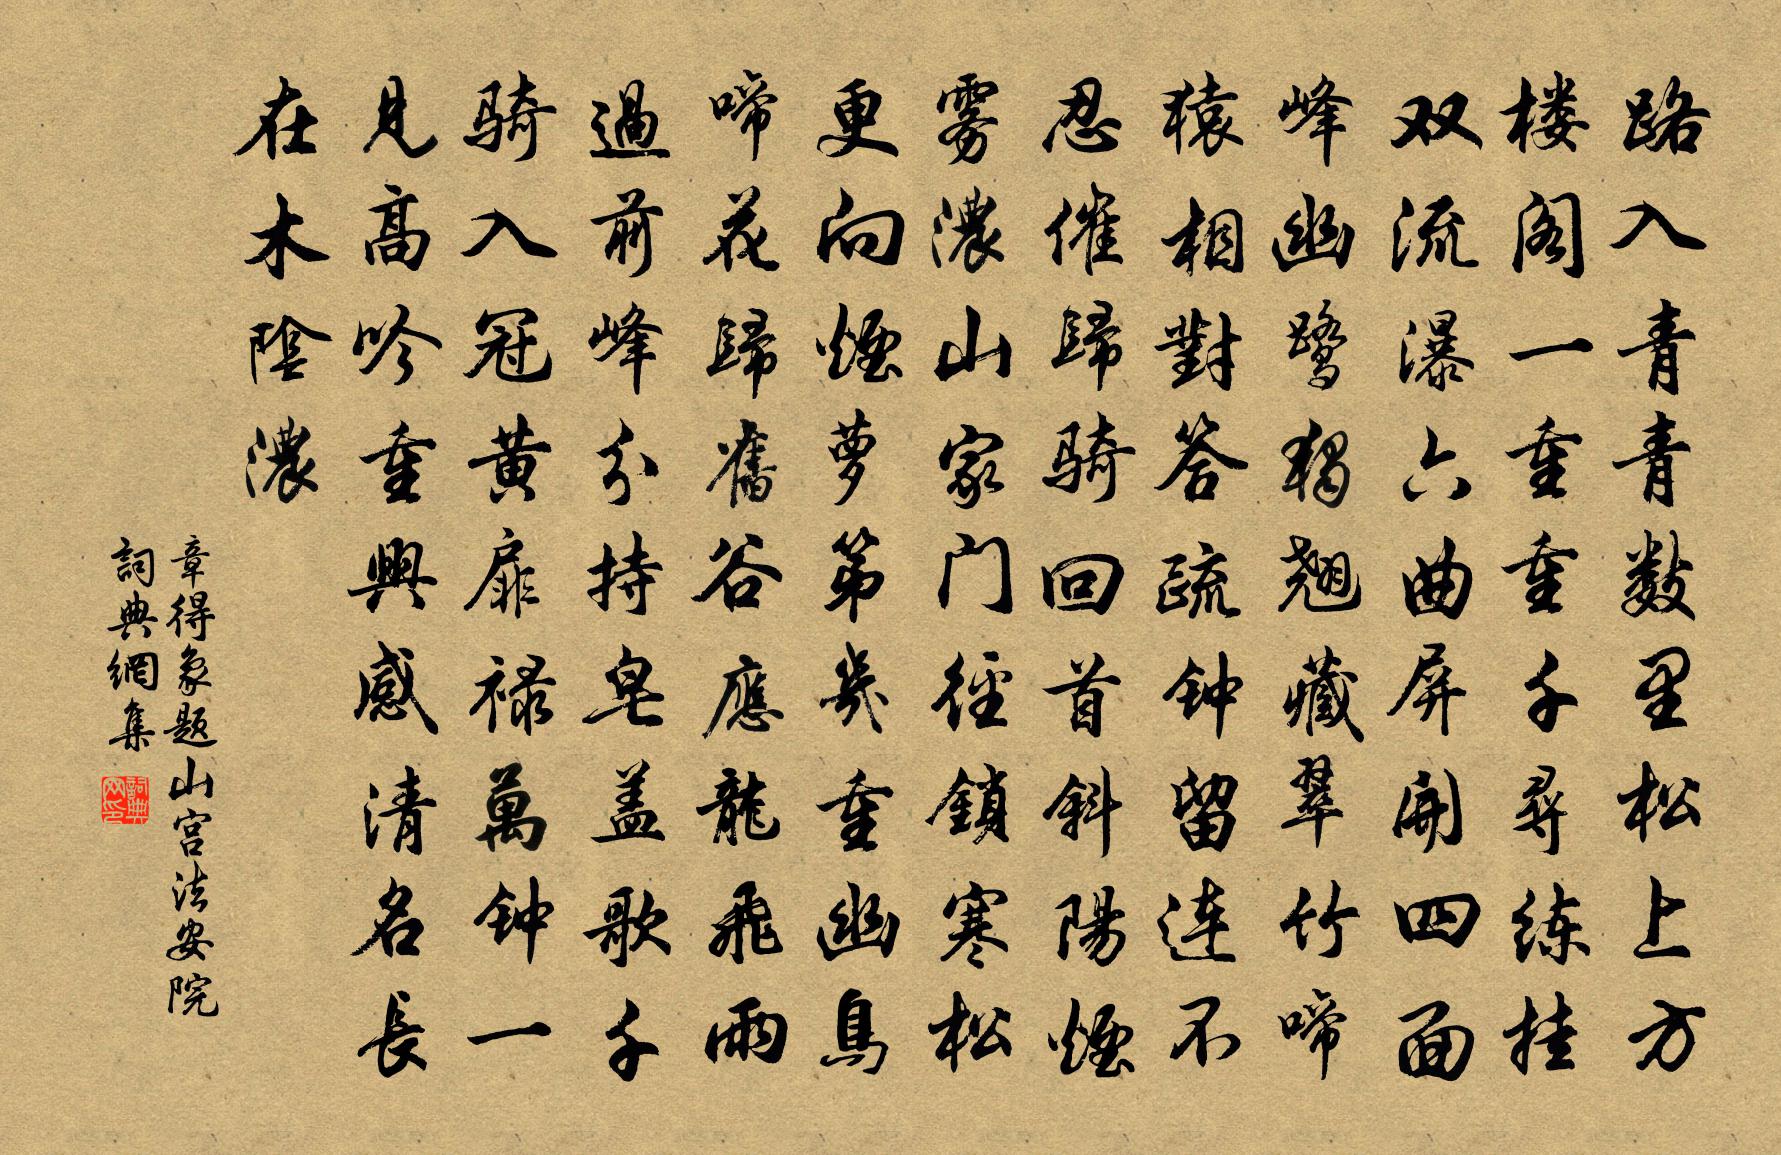 路入青青数里松上方
楼阁一重重千尋练挂
双流瀑六曲屏開四面
峰幽鹭獨翘藏翠竹啼
猿相對答疏钟留连不
忍催歸骑回首斜陽煙
雾濃山家门徑鎖寒松
更向煙萝第幾重幽鳥
啼花歸舊谷應龍飛雨
過前峰分持皂盖歌千
骑入冠黄扉禄萬钟一
見高吟重興感清名長
在木陰濃
章得象题山宫法安院
詞典網集
詞典网印